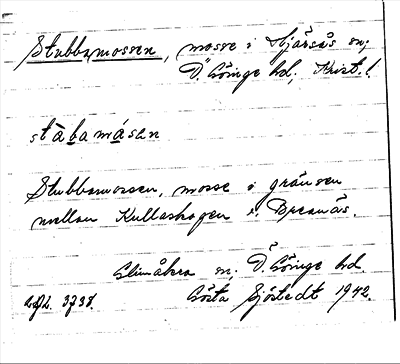 Stubbamossen, mosse i Hjärsås sn;
Ö. Göinge hd, Krist. l.
stàbamásan
Stubbamossen, mosse i gränsen
mellan Kullaskogen o. Breanäs.
Glimåkra sn, Ö. Göinge hd.
3738. Gösta Sjöstedt 1942.